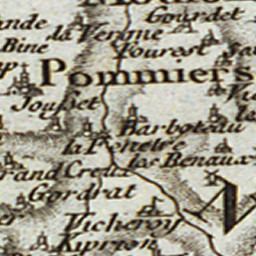 Gourdet
la Vergne
Bine
Fourest
Pommiers
Jousset
Barboteau
la Fenetre
les Renaux
Grand Creux
Gordrat
Vicheroy
Kiprion